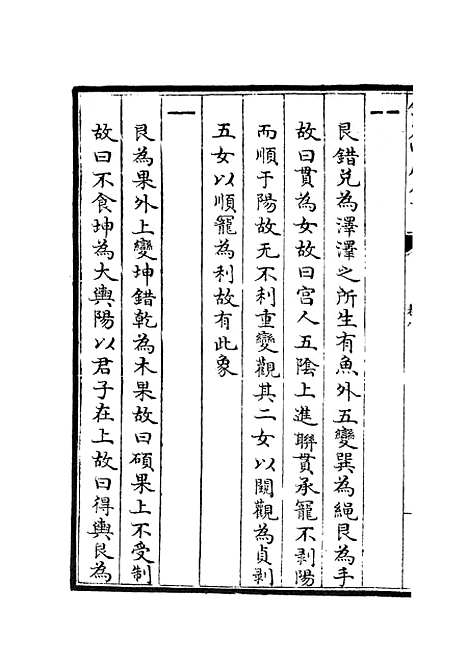 ⚋
艮錯兌為澤澤之所生有魚外五變巽為繩艮為手
故曰貫為女故曰宫人五陰上進聯貫承寵不剥陽
而順于陽故无不利重變觀其二女以闚觀為貞剥
五女以順寵為利故有此象
⚊
艮為果外上變坤錯乾為木果故曰碩果上不受制
故曰不食坤為大輿陽以君子在上故曰得輿艮為